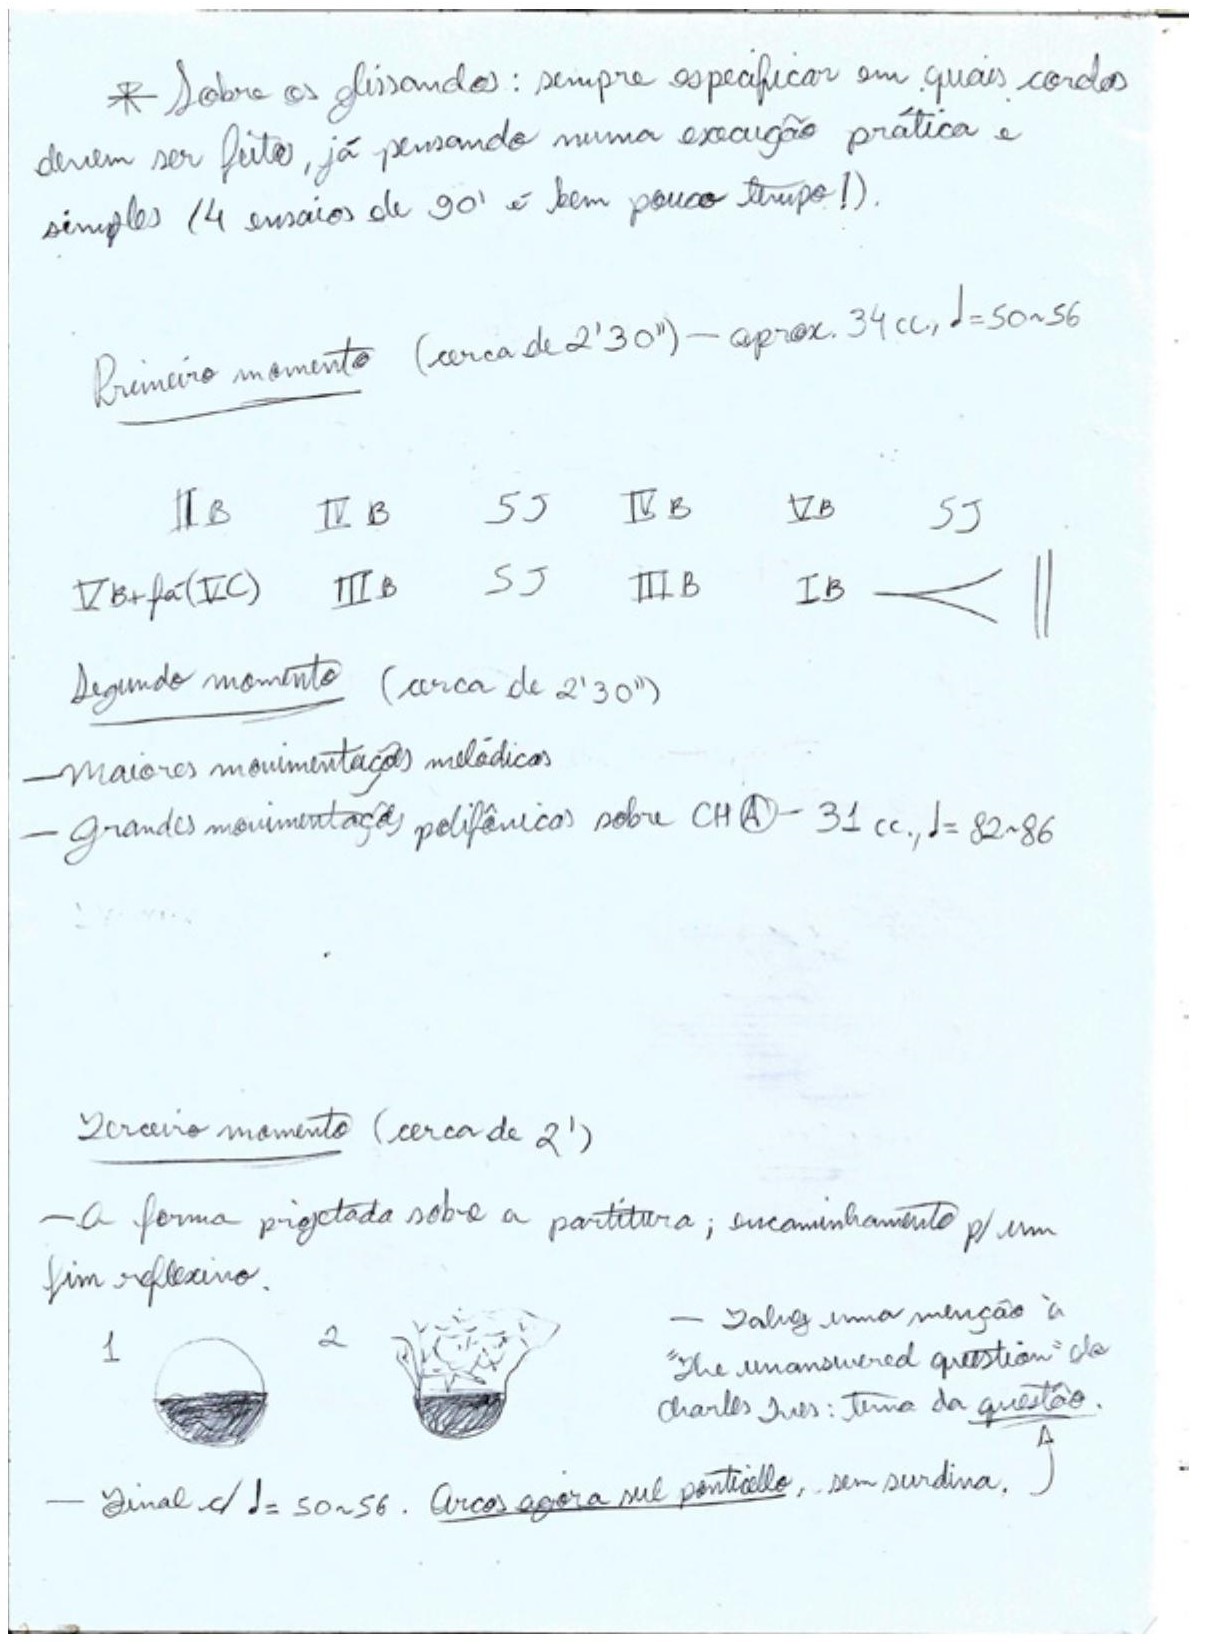 * Sobre os glissandos: sempre especificar em quais cordas
devem ser feitos, já pensando numa execução prática e
simples (4 ensaios de 90' é bem pouco tempo!).
Primeiro momento (cerca de 2'30") — aprox. 34 cc., ♩=50~56
II B IV B SJ IV B V B SJ
V B + fá (VC) III B SJ III B I B ||
Segundo momento (cerca de 2'30")
— Maiores movimentações melódicas
— Grandes movimentações polifônicas sobre CH Ⓐ — 31 cc., ♩= 82~86
Terceiro momento (cerca de 2')
— A forma projetada sobre a partitura; encaminhamento p/ um
fim reflexivo.
1 2
— Talvez uma menção à
"The unanswered question" de
Charles Ives: tema da questão.
— Final c/ ♩= 50~56. Arcos agora sul ponticello, sem surdina.